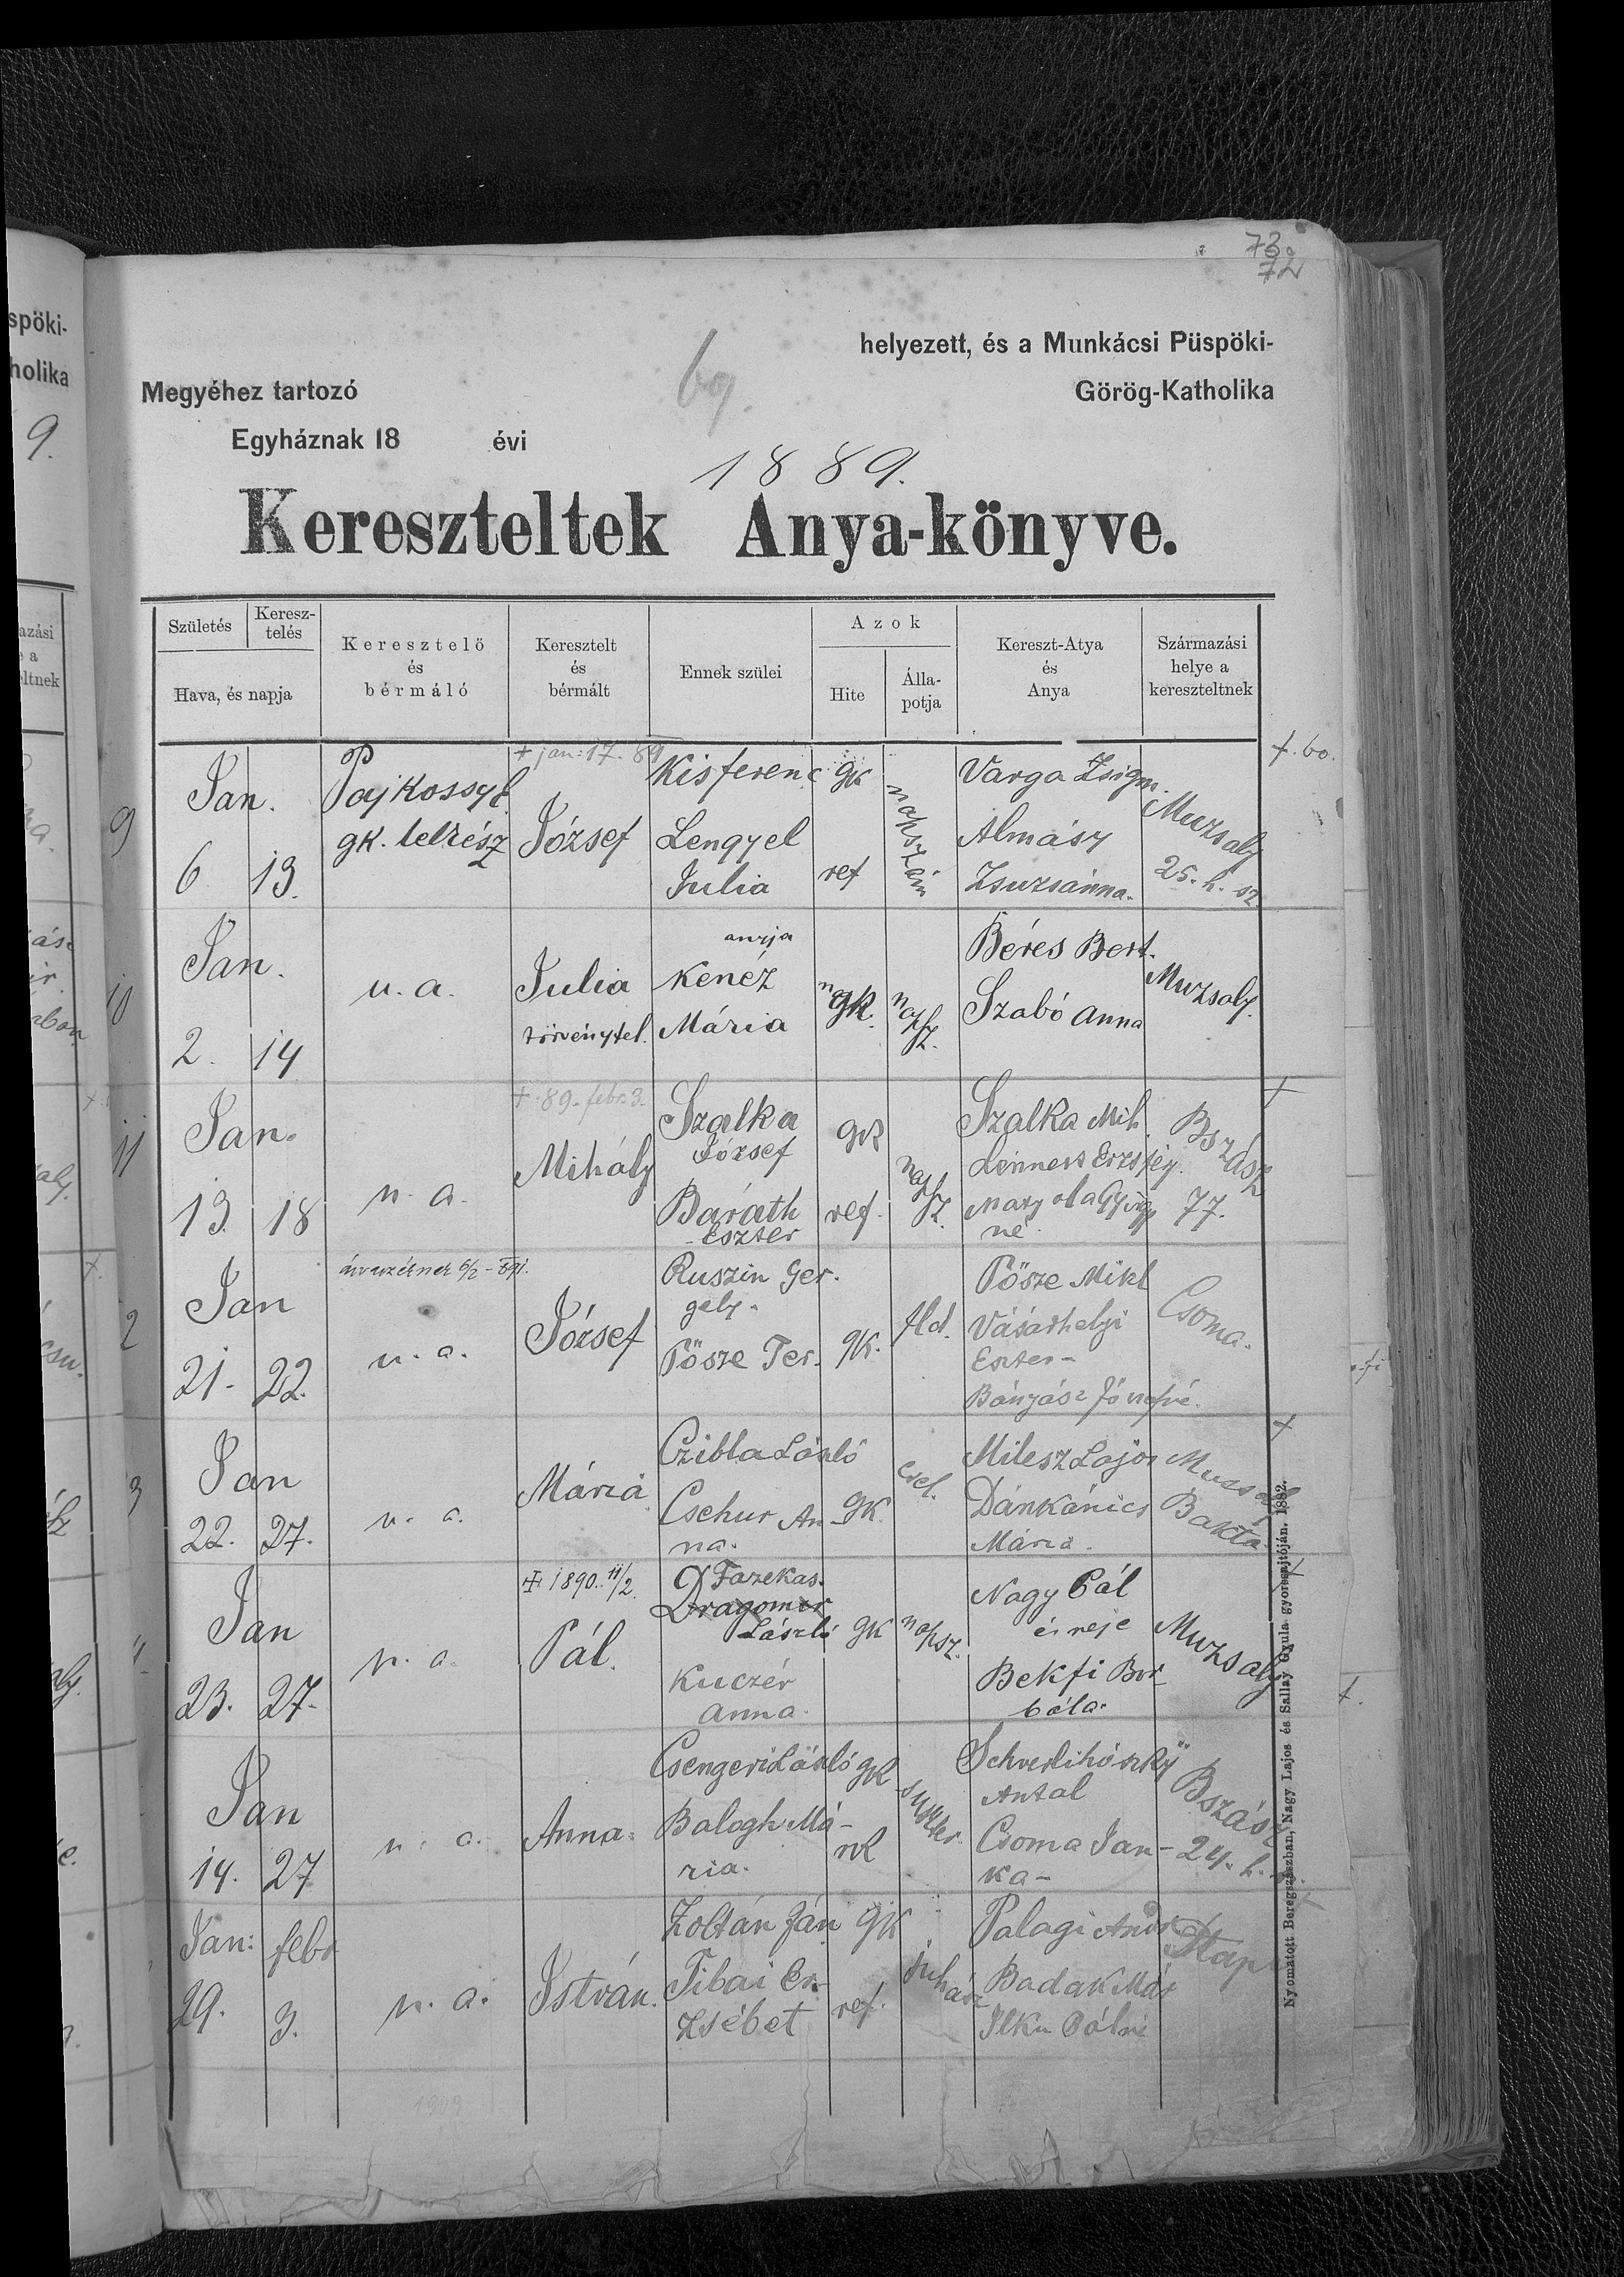 73.
72
helyezett, és a Munkácsi Püspöki-
Megyéhez tartozó
69.
Görög-Katholika
Egyháznak 18 évi
1889.
Kereszteltek Anya-könyve.
Születés
Keresz-
telés
Hava, és napja
Keresztelő
és
bérmáló
Keresztelt
és
bérmált
Ennek szülei
Azok
Hite
Álla-
potja
Kereszt-Atya
és
Anya
Származási
helye a
kereszteltnek
9
Jan.
6 13.
gk. lelkész
+ jan: 17. 89
József
Kis ferenc
Lengyel
Julia
gk
ref
napszám
Varga Zsigm.
Almásy
Zsuzsánna.
Muzsaly
25. h. sz.
10
Jan.
2. 14
u. a.
Julia
törvénytel.
anyja
Kenéz
Mária
gk.
napsz.
Béres Bert.
Szabó Anna
Muzsaly.
11
Jan.
13. 18
u. a.
+ 89. febr. 3.
Mihály
Szalka
József
Baráth
Eszter
gk
ref.
napsz.
Szalka Mih.
né.
Bszász
77.
2
Jan
21. 22.
u. a.
József
Ruszin Ger-
gely.
Pősze Ter.
gk.
fld.
Pősze Mikl
Vásárhelyi
Eszter-
Csoma.
3
Jan
22. 27.
u. a.
Mária
Czibla László
Csehur An-
na.
gk.
csel.
Milesz Lajos
Dánkánics
Mária.
Bakta.
Jan
23. 27.
u. a.
+ 1890. 11/2.
Pál.
Fazekas.
Dragomer
László
Kuczér
Anna.
gk
napsz.
Nagy Pál
és neje
Bekfi Bor-
bála.
Muzsaly
Jan
14. 27
u. a.
Anna.
Csengeri László
Balogh Má-
ria.
gk
rk
Antal
Csoma Jan-
ka-
Bszász
24. h.
Jan: febr
29. 3.
u. a.
István.
Zoltán Ján
Tibai Er-
zsébet
gk
ref.
juhász
Palagi And
Badak Már
Ilku Pálné
Nyomatott Beregszászban, Nagy Lajos és Sallay Gyula gyorssajtóján. 1882.